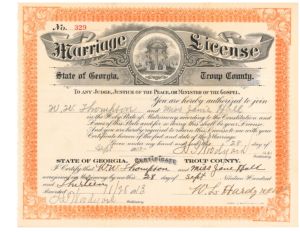 No. 329
Marriage License
State of Georgia, Troup County.
TO ANY JUDGE, JUSTICE OF THE PEACE, OR MINISTER OF THE GOSPEL.
You are hereby authorized to join
W. W. Thompson and Miss Janie Hall
in the Holy State of Matrimony according to the Constitution and
Laws of this State and for so doing this shall be your License.
And you are hereby required to return this License to me with your
Certificate hereon of the fact and date of the Marriage.
28
Sept
STATE OF GEORGIA, CERTIFICATE TROUP COUNTY.
I Certify that W. W. Thompson and Miss Janie Hall
were joined in Matrimony by me this 28 day of Sept Nineteen Hundred
and Thirteen
W. L. Hardy